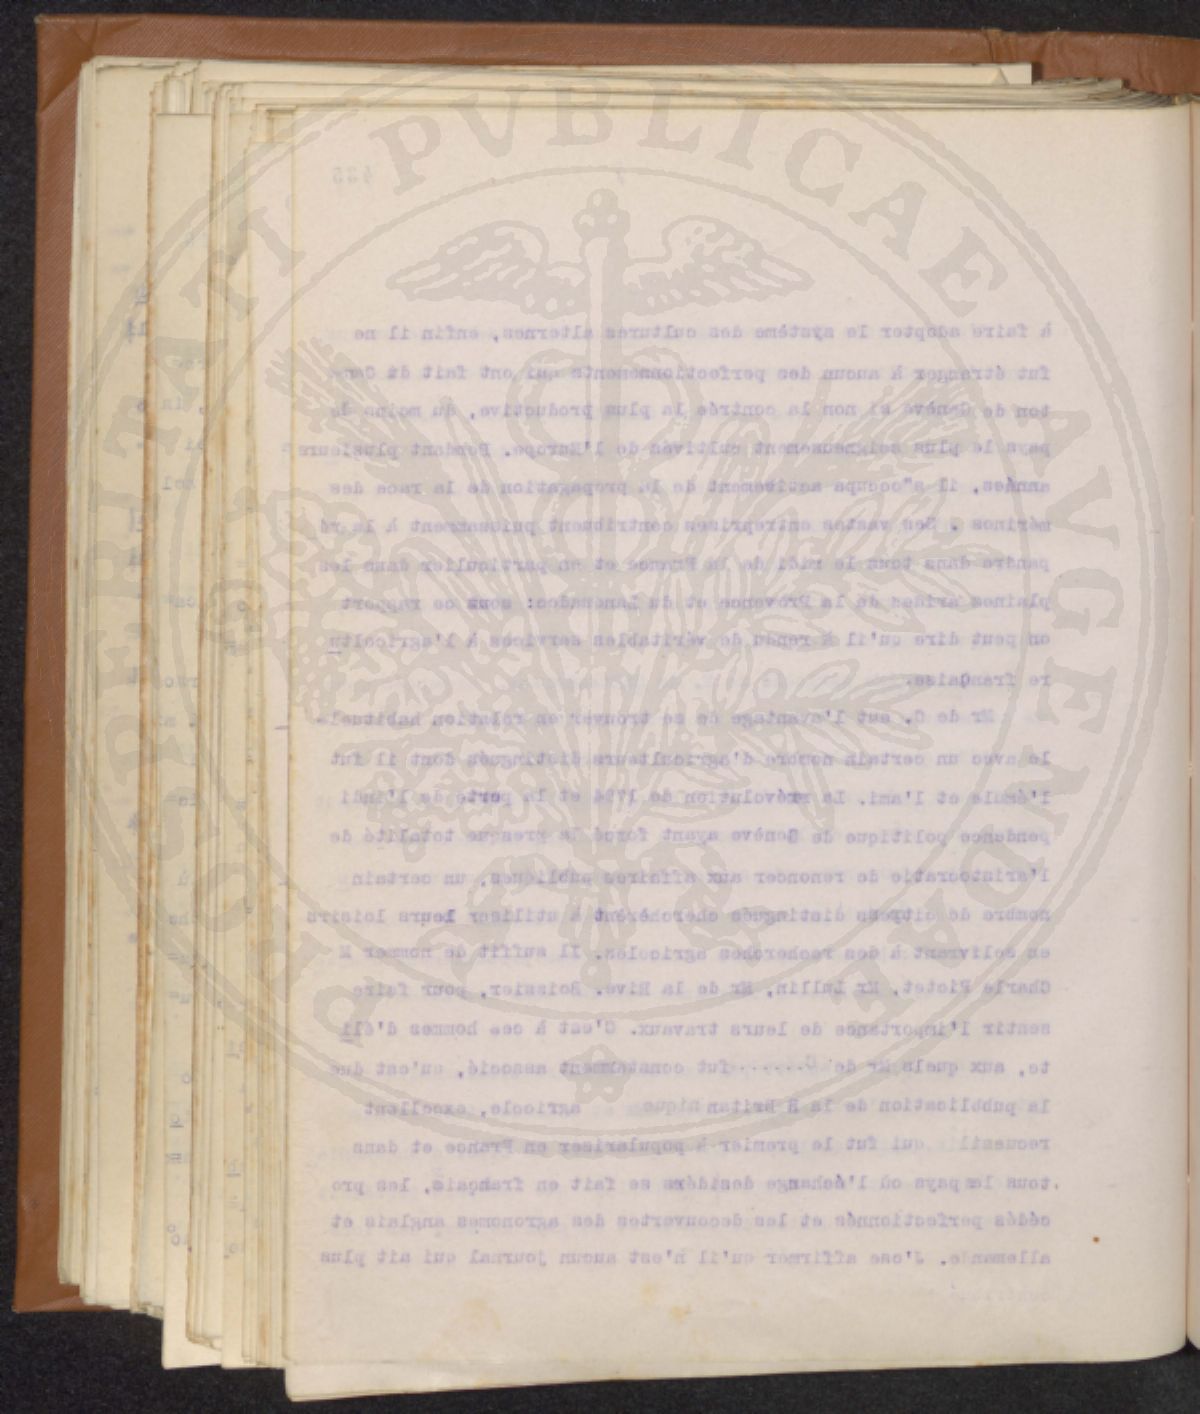 435
à faire adopter le système des cultures alternes, enfin il ne
fut étranger à aucun des perfectionnements qui ont fait du Can=
ton de Genève si non la contrée la plus productive, du moins le
pays le plus soigneusement cultivés de l'Europe. Pendant plusieurs
années, il s"occupa activement de la propagation de la race des
mérinos . Ses vastes entreprises contribuent puissamment à la ré
pandre dans tous le midi de la France et en particulier dans les
plaines arides de la Provence et du Languedoc: sous ce rapport
on peut dire qu'il à rendu de véritables services à l'agricoltu
re française.
Mr de C. eut l'avantage de se trouver en relation habituel=
le avec un certain nombre d'agriculteurs distingués dont il fut
l'émule et l'ami. La révolution de 1794 et la perte de l'indé
pendence politique de Genève ayant forcé la presque totalité de
l'aristocratie de renoncer aux affaires publiques, un certain
nombre de citoyens distingués cherchèrent à utiliser leurs loisirs
en selivrant à des recherches agricoles. Il suffit de nommer M
Charle Pictet, Mr Lullin, Mr de la Rive. Boissier, pour faire
sentir l'importance de leurs travaux. C'est à ces hommes d'éli
te, aux quels Mr de C....... fut constamment associé, qu'est due
la pubblication de la B Britannique agricole, excellent
recueuil qui fut le premier à populariser en France et dans
tous les pays où l'échange desidées se fait en français, les pro
cédés perfectionnés et les decouvertes des agronomes anglais et
allemands. J'ose affirmer qu'il n'est aucun journal qui ait plus
PROSPERITATI PVBLICAE AVGENDAE